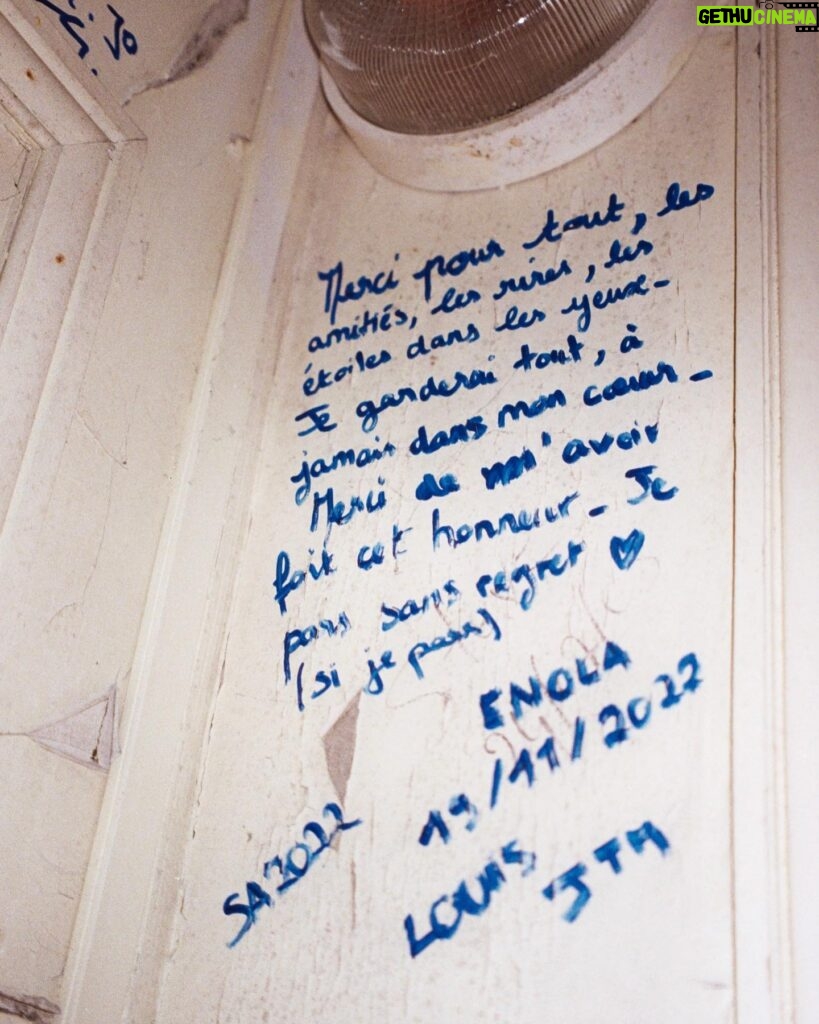 GETHUCINEMA
Merci pour tout, les
amitiés, les rires, les
étoiles dans les yeux-
Je garderai tout, à
jamais dans mon cœur-
Merci de m'avoir
fait cet honneur- Je
pars sans regret ♥
(si je pars)
ENOLA
19/11/2022
SA2022
LOUIS
JTM